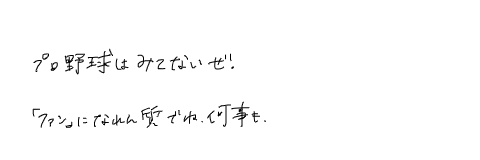 プロ野球はみてないぜ!
「ファン」になれん質でね.何事も.